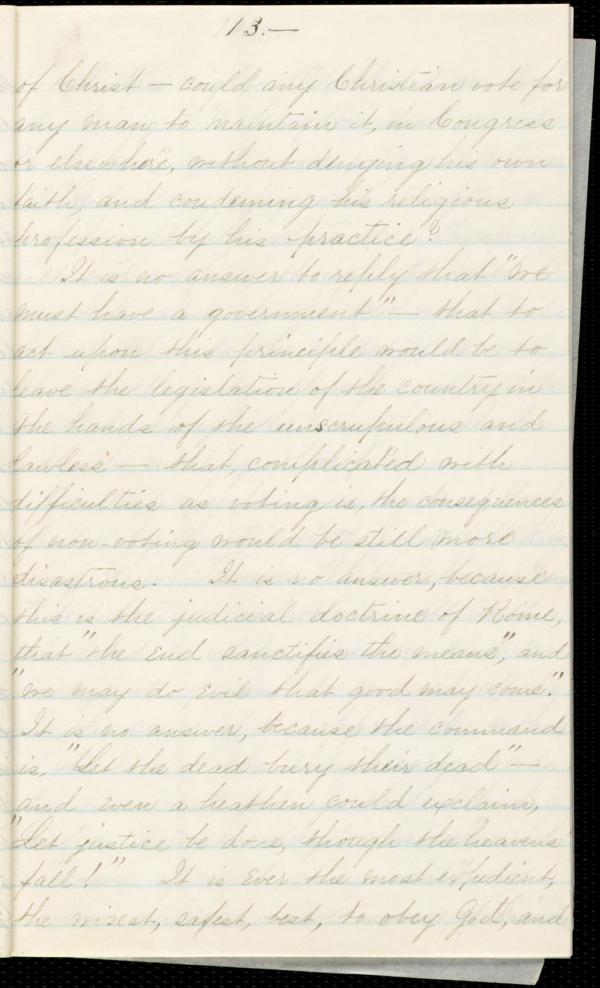 13.—
of Christ — could any Christian vote for
any man to maintain it, in Congress
or elsewhere, without denying his own
faith, and condeming his religious
profession by his practice?
It is no answer to reply that "we
must have a government" — that to
act upon this principle would be to
leave the legislation of the country in
the hands of the unscrupulous and
lawless — that, complicated with
difficulties as voting is, the consequences
of non-voting would be still more
disastrous. It is no answer, because
this is the judicial doctrine of Rome,
that "the end sanctifies the means", and
"we may do evil that good may come."
It is no answer, because the command
is, "Let the dead bury their dead" —
and even a heathen could exclaim,
"Let justice be done, though the heavens
fall!" It is ever the most expedient,
the wisest, safest, best, to obey God, and